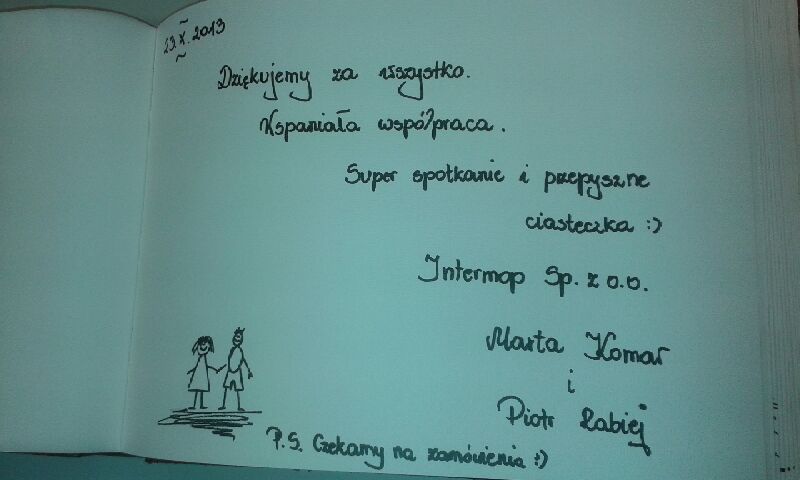 23.X.2013
Dziękujemy za wszystko.
Wspaniała współpraca.
Super spotkanie i przepyszne
ciasteczka :)
Intermap Sp. z o.o.
Marta Komar
i
Piotr Łabiej
P.S. Czekamy na zamówienia :)